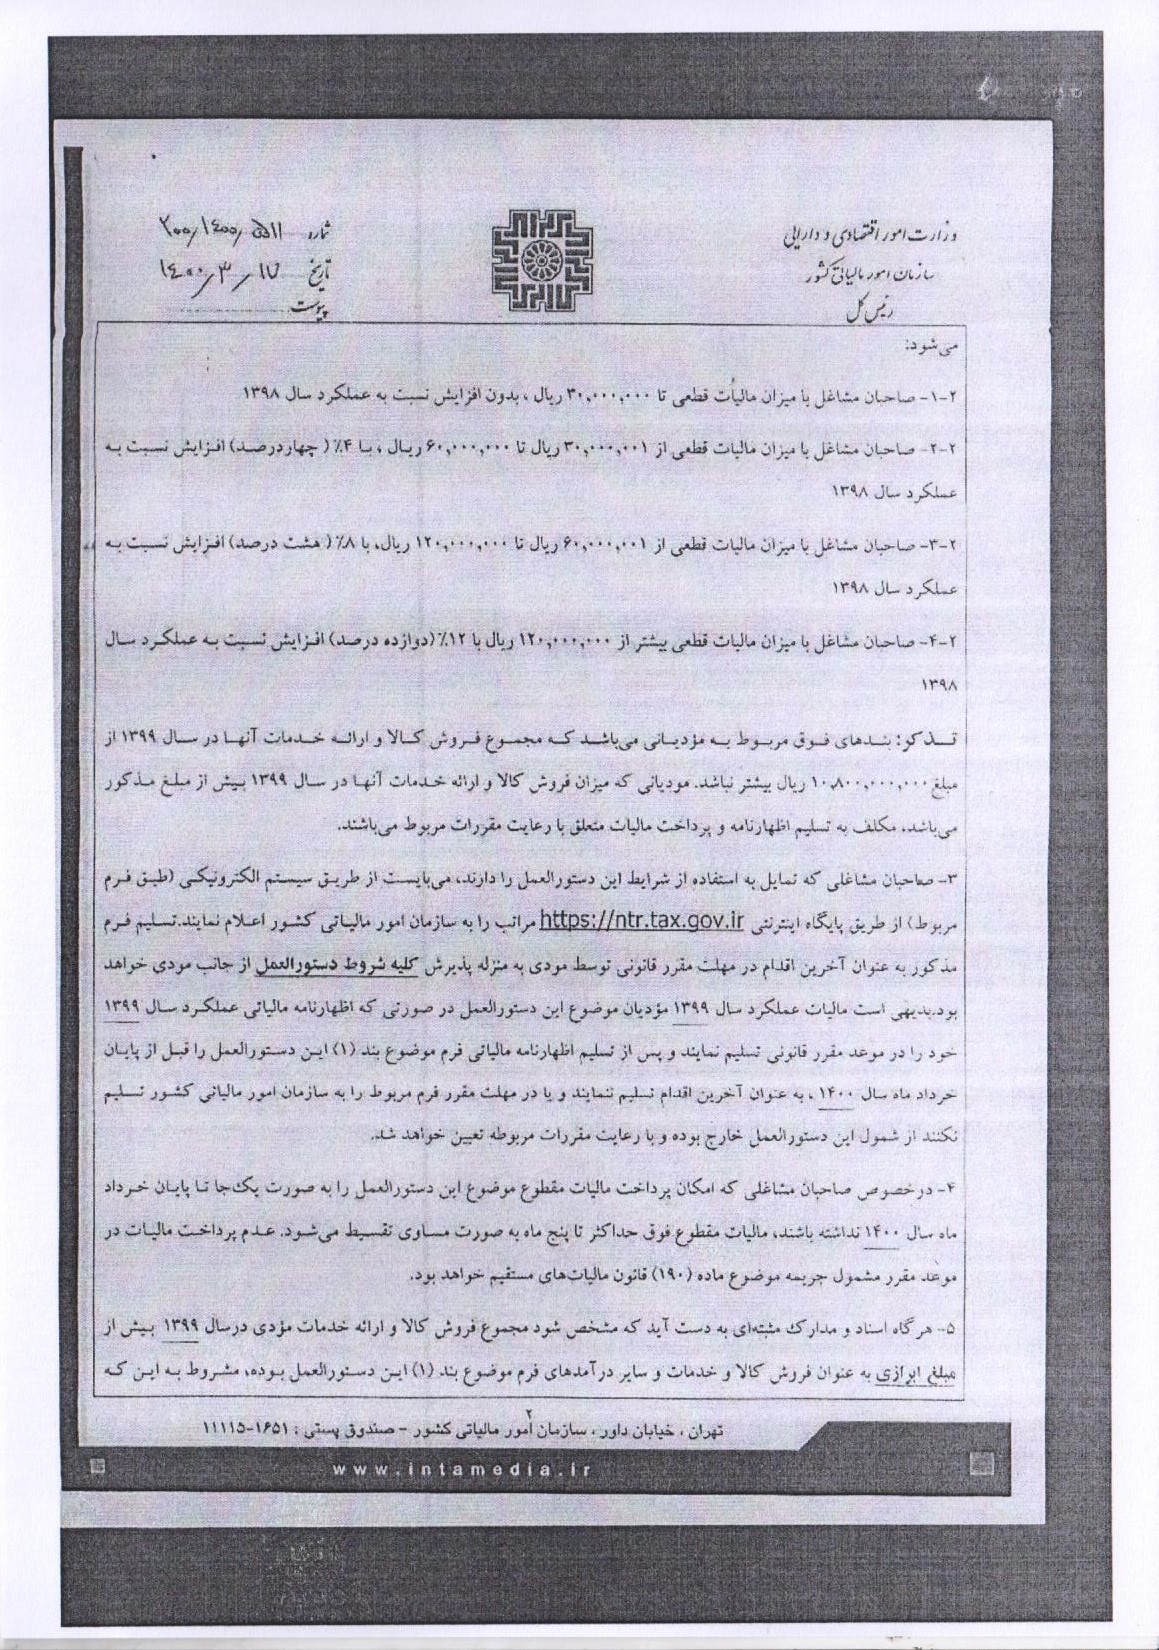 وزارت امور اقتصادی و دارایی
سازمان امور مالیاتی کشور
رئیس کل
شماره ۲۰۰/۱۴۰۰/۵۱۱
تاریخ ۱۴۰۰/۳/۱۷
پیوست
می‌شود:
۱-۲- صاحبان مشاغل با میزان مالیات قطعی تا ۳۰,۰۰۰,۰۰۰ ریال ، بدون افزایش نسبت به عملکرد سال ۱۳۹۸
۲-۲- صاحبان مشاغل با میزان مالیات قطعی از ۳۰,۰۰۰,۰۰۱ ریال تا ۶۰,۰۰۰,۰۰۰ ریال ، با ۴٪ ( چهاردرصد) افزایش نسبت به
عملکرد سال ۱۳۹۸
۳-۲- صاحبان مشاغل با میزان مالیات قطعی از ۶۰,۰۰۰,۰۰۱ ریال تا ۱۲۰,۰۰۰,۰۰۰ ریال، با ۸٪ ( هشت درصد) افزایش نسبت به
عملکرد سال ۱۳۹۸
۴-۲- صاحبان مشاغل با میزان مالیات قطعی بیشتر از ۱۲۰,۰۰۰,۰۰۰ ریال با ۱۲٪ (دوازده درصد) افزایش نسبت به عملکرد سال
۱۳۹۸
تذکر: بندهای فوق مربوط به مؤدیانی می‌باشد که مجموع فروش کالا و ارائه خدمات آنها در سال ۱۳۹۹ از
مبلغ ۱۰,۸۰۰,۰۰۰,۰۰۰ ریال بیشتر نباشد. مودیانی که میزان فروش کالا و ارائه خدمات آنها در سال ۱۳۹۹ بیش از مبلغ مذکور
می‌باشد، مکلف به تسلیم اظهارنامه و پرداخت مالیات متعلق با رعایت مقررات مربوط می‌باشند.
۳- صاحبان مشاغلی که تمایل به استفاده از شرایط این دستورالعمل را دارند، می‌بایست از طریق سیستم الکترونیکی (طبق فرم
مربوط) از طریق پایگاه اینترنتی https://ntr.tax.gov.ir مراتب را به سازمان امور مالیاتی کشور اعلام نمایند.تسلیم فرم
مذکور به عنوان آخرین اقدام در مهلت مقرر قانونی توسط مودی به منزله پذیرش کلیه شروط دستورالعمل از جانب مودی خواهد
بود.بدیهی است مالیات عملکرد سال ۱۳۹۹ مؤدیان موضوع این دستورالعمل در صورتی که اظهارنامه مالیاتی عملکرد سال ۱۳۹۹
خود را در موعد مقرر قانونی تسلیم نمایند و پس از تسلیم اظهارنامه مالیاتی فرم موضوع بند (۱) این دستورالعمل را قبل از پایان
خرداد ماه سال ۱۴۰۰ ، به عنوان آخرین اقدام تسلیم ننمایند و یا در مهلت مقرر فرم مربوط را به سازمان امور مالیاتی کشور تسلیم
نکنند از شمول این دستورالعمل خارج بوده و با رعایت مقررات مربوطه تعیین خواهد شد.
۴- درخصوص صاحبان مشاغلی که امکان پرداخت مالیات مقطوع موضوع این دستورالعمل را به صورت یک‌جا تا پایان خرداد
ماه سال ۱۴۰۰ نداشته باشند، مالیات مقطوع فوق حداکثر تا پنج ماه به صورت مساوی تقسیط می‌شود. عدم پرداخت مالیات در
موعد مقرر مشمول جریمه موضوع ماده (۱۹۰) قانون مالیات‌های مستقیم خواهد بود.
۵- هرگاه اسناد و مدارک مثبته‌ای به دست آید که مشخص شود مجموع فروش کالا و ارائه خدمات مؤدی درسال ۱۳۹۹ بیش از
مبلغ ابرازی به عنوان فروش کالا و خدمات و سایر درآمدهای فرم موضوع بند (۱) این دستورالعمل بوده، مشروط به این که
۲
تهران ، خیابان داور ، سازمان امور مالیاتی کشور - صندوق پستی : ۱۶۵۱-۱۱۱۱۵
www.intamedia.ir